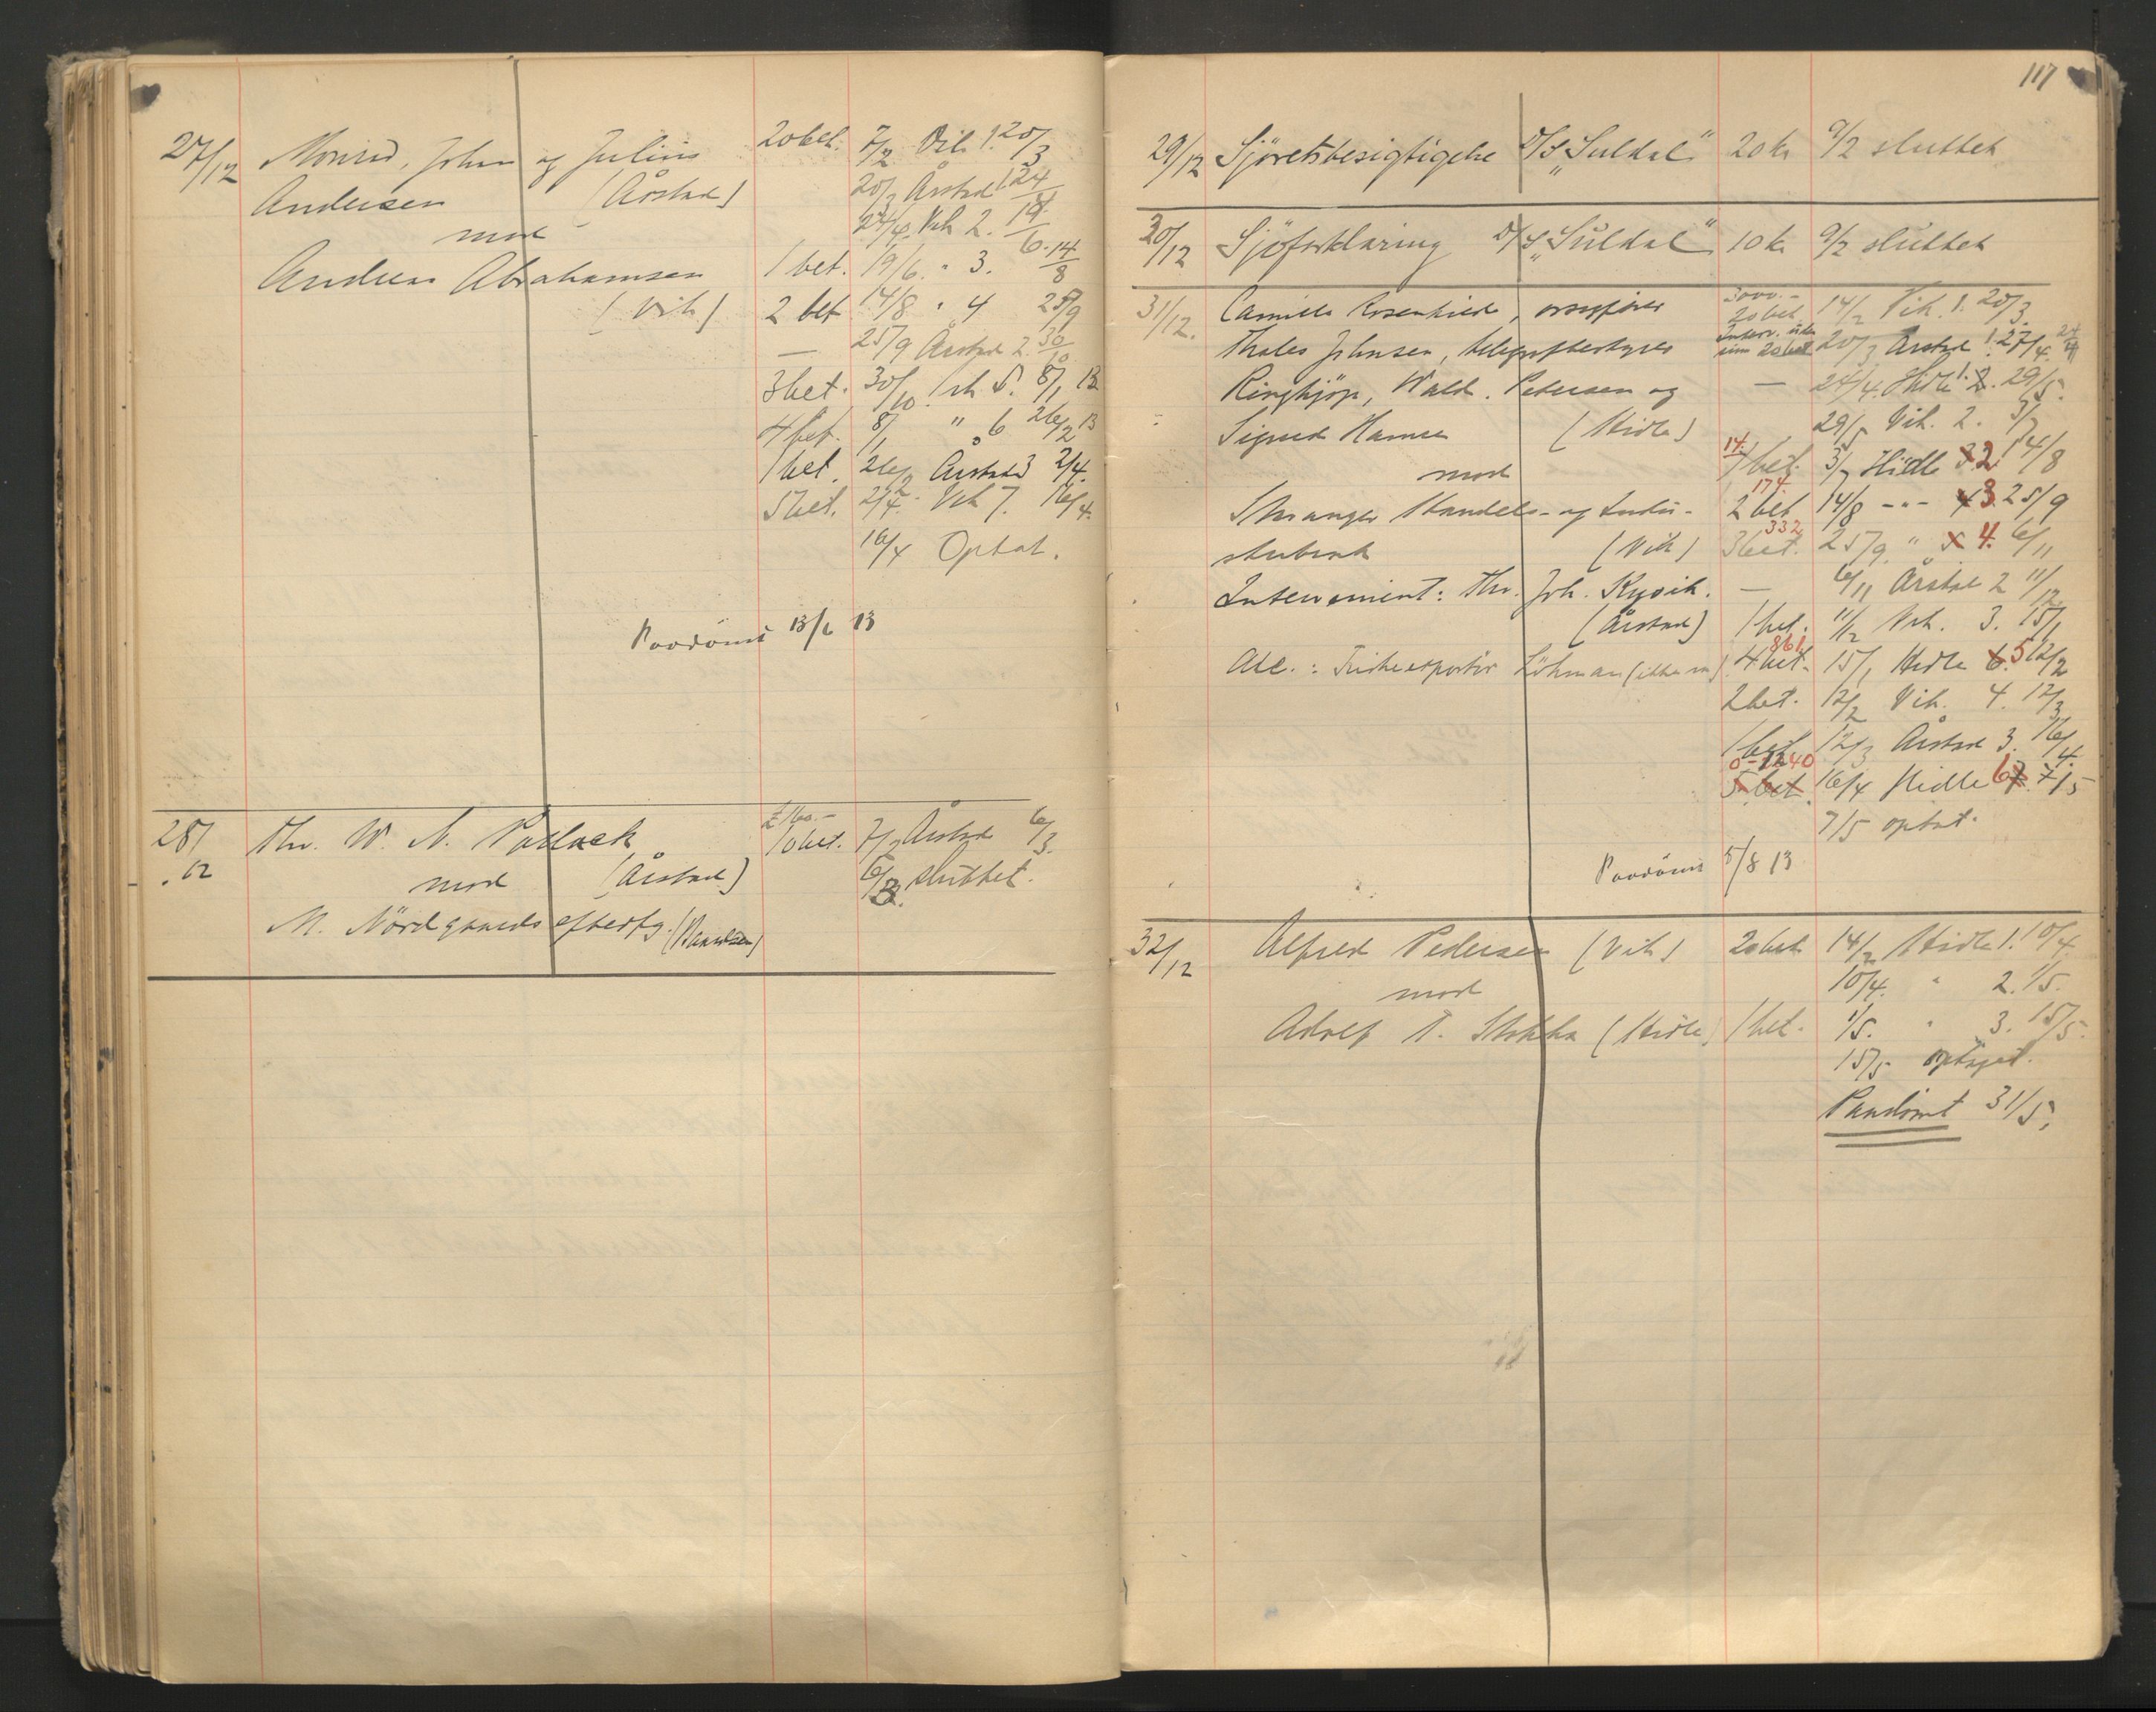 27/12 Monrad, Johan og Julius 20 bet. 7/2 Vik 1. 20/3
Andersen (Årstad) 20/3 Årstad 1 24/4
mod 24/4 Vik 2. 19/6
Andreas Abrahamsen 1 bet. 19/6 " 3. 14/8
(Vik) 2 bet 14/8 " 4 25/9
— 25/9 Årstad 2. 30/10
3 bet. 30/10 Vik 5. 8/1 13
4 bet. 8/1 " 6 26/2 13
1 bet. 26/2 Årstad 3 2/4.
5 bet. 2/4. Vik 7. 16/4.
16/4 Optat.
Paadömt 13/6 13
28/12 Thr. W. A. £ 160.- 10 bet. 7/2 Årstad 6/3.
mod (Årstad) 6/3. sluttet.
M. Nördgaards efterflg.
117
29/12 Sjöretsbesigtigelse D/S "Suldal" 20 kr 9/2 sluttet
30/12 Sjöforklaring D/S "Suldal" 10 kr 9/2 sluttet
31/12. Camilla Rosenkilde, 3000.- 20 bet. 14/2 Vik. 1. 20/3.
Thales Johnsen, telegrafbestyrer 20/3 Årstad 1. 24/4
Ringkjöp, Wald. Petersen og — 24/4. Hidle 1. 2. 29/5.
Sigurd Hansen (Hidle) 29/5 Vik. 2. 3/7
mod 14. 1 bet. 3/7 Hidle 3. 2. 14/8
Stavanger Handels- og Indu- 174 2 bet 14/8 -"- 4 3. 25/9
stribank (Vik) 332 3 bet. 25/9. " 5 4. 6/11
Intervenient: Thr. Joh. Kyvik. — 6/11 Årstad 2 11/12
(Årstad) 1 bet. 11/12 Vik. 3. 15/1
861 4 bet. 15/1 Hidle 6. 5 12/2
2 bet. 12/2 Vik. 4. 12/3
1 bet 12/3 Årstad 3. 16/4.
5 bet. 16/4 Hidle 6 7 7/5
7/5 optat.
Paadömt 5/8 13
32/12 Alfred Pedersen (Vik) 20 bet 14/2 Hidle 1. 10/4
mod 10/4. " 2. 1/5.
Adolf T. Stokka (Hidle) 1 bet. 1/5. " 3. 15/5.
15/5 optaget.
Paadömt 31/5.